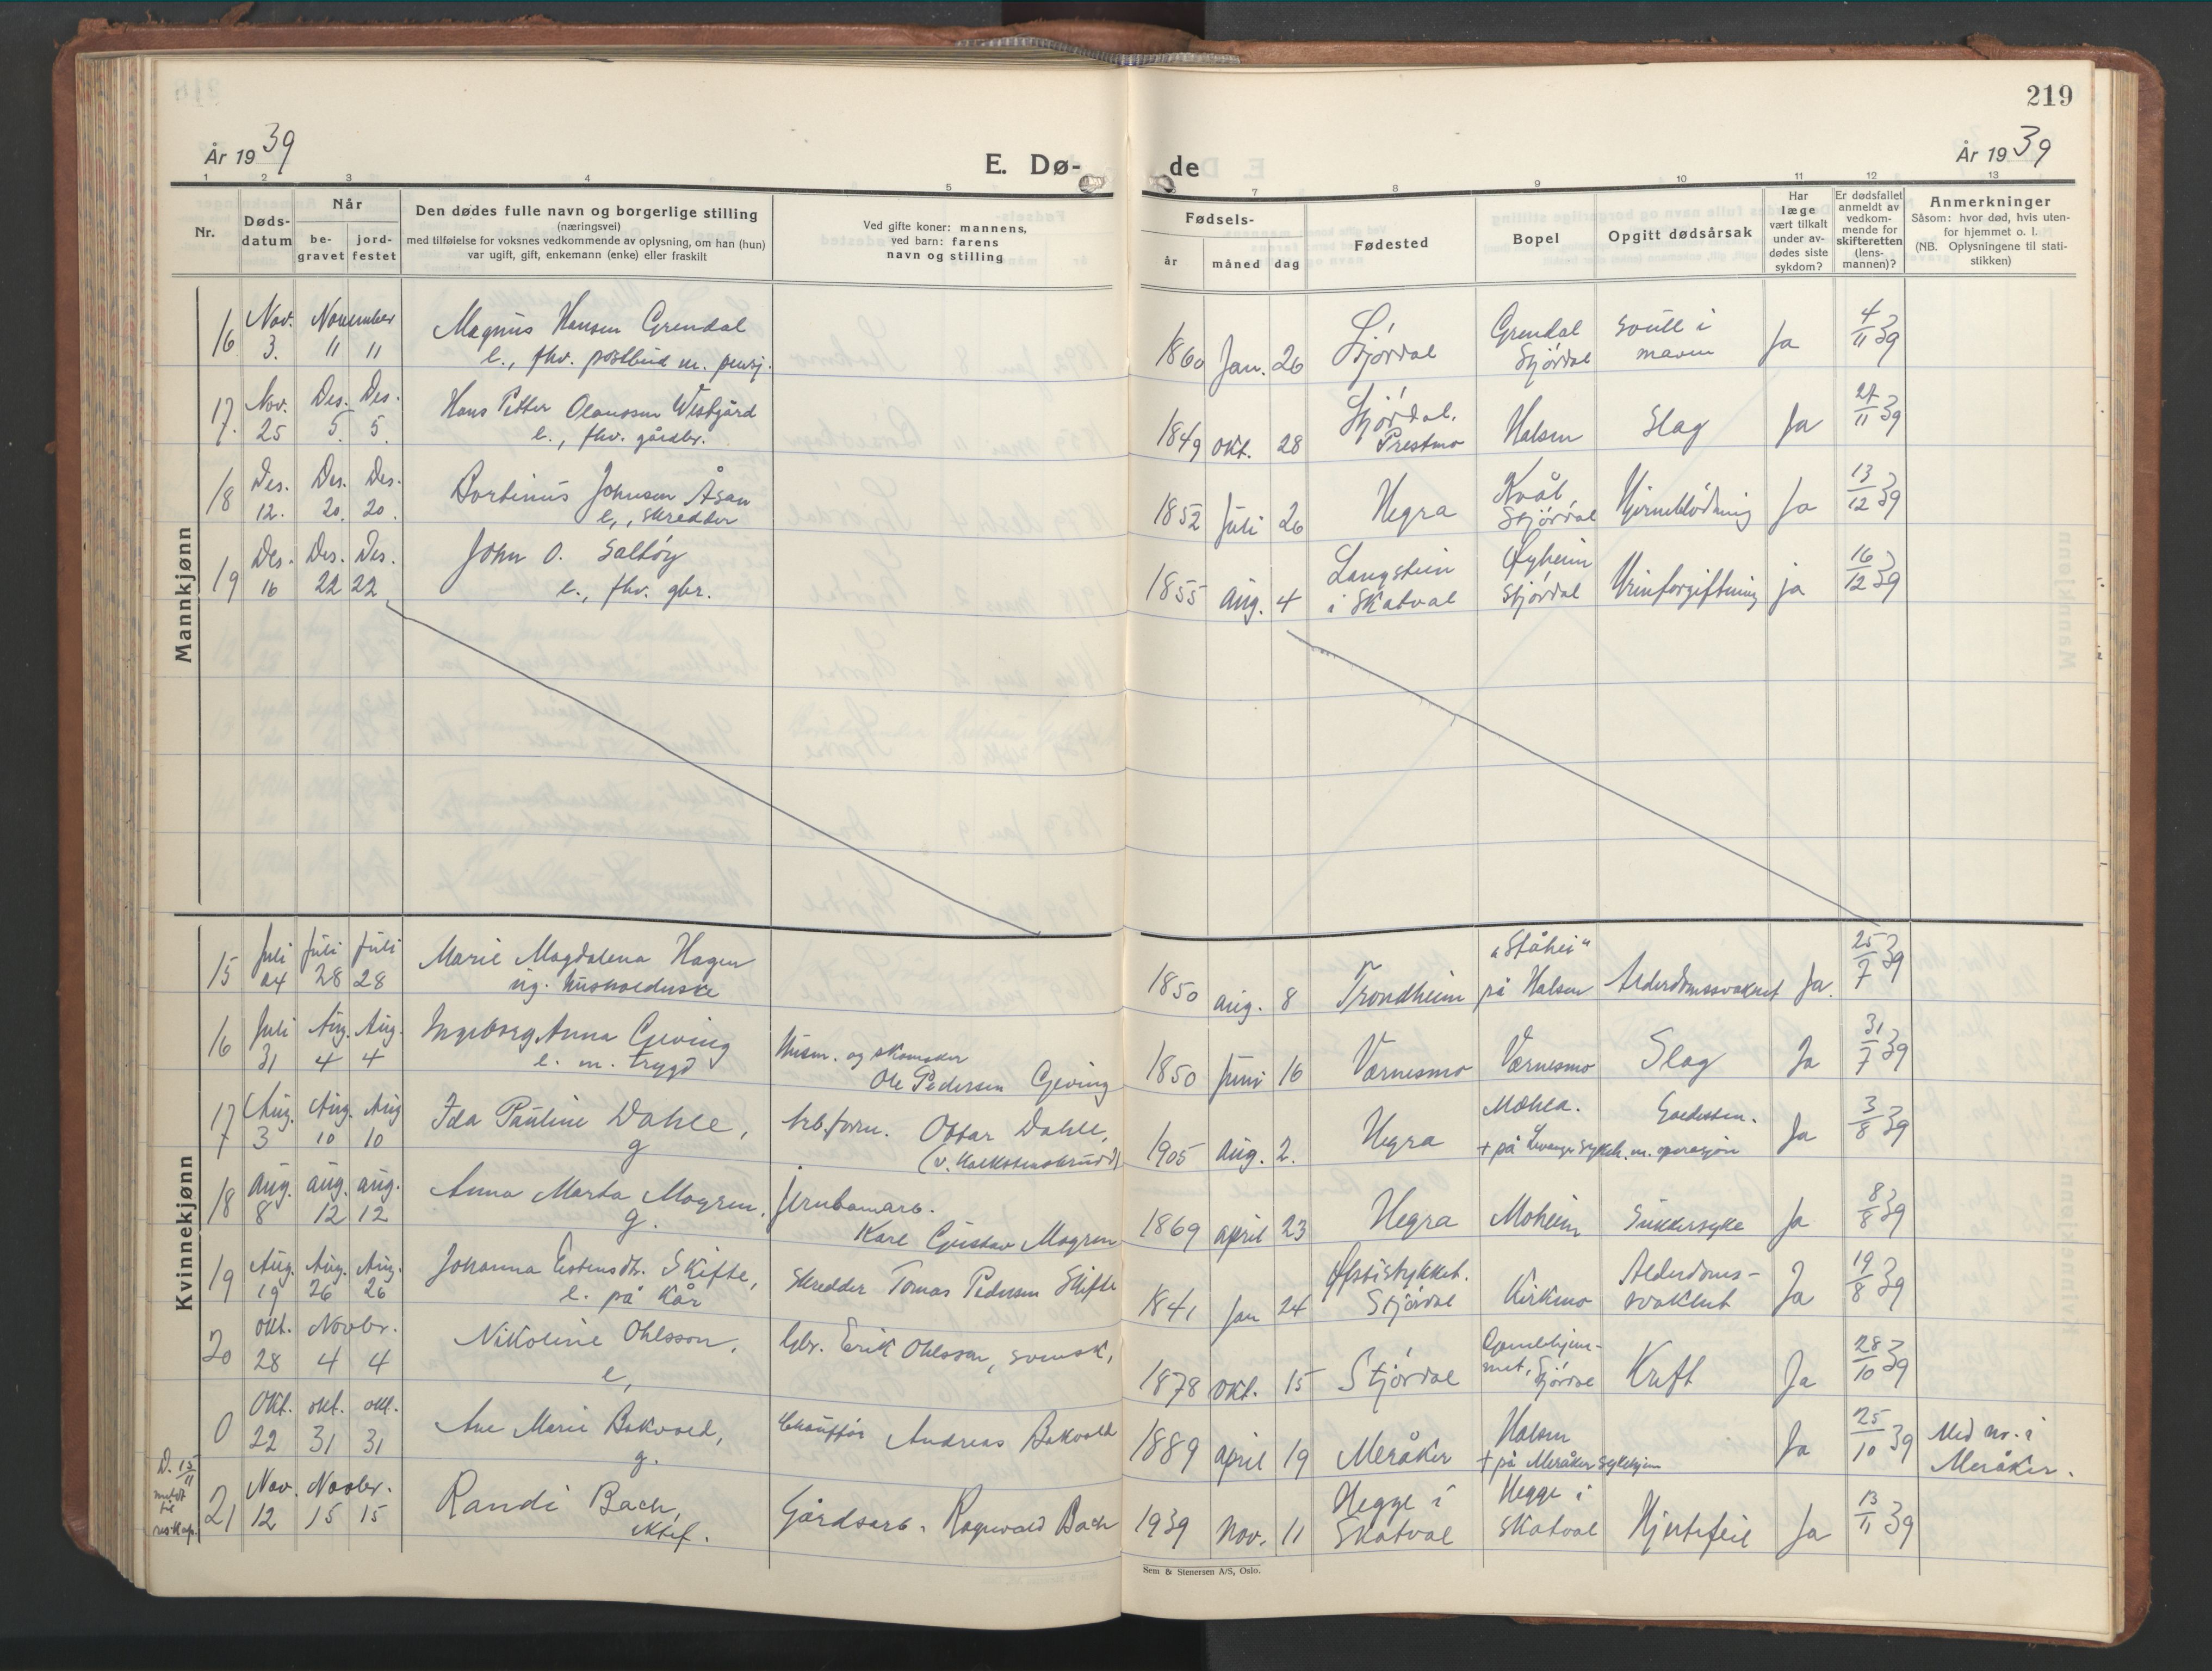 219
År 1939
E. Dø-
de
År 1939
1 2 3 4 5 6 7 8 9 10 11 12 13
Nr.
Døds-
datum
Når
be-
gravet
jord-
festet
Den dødes fulle navn og borgerlige stilling
(næringsvei)
med tilføielse for voksnes vedkommende av oplysning, om han (hun)
var ugift, gift, enkemann (enke) eller fraskilt
Ved gifte koner: mannens,
ved barn: farens
navn og stilling
Fødsels-
år måned dag
Fødested
Bopel
Opgitt dødsårsak
Har
læge
vært tilkalt
under av-
dødes siste
sykdom?
Er dødsfallet
anmeldt av
vedkom-
mende for
skifteretten
(lens-
mannen)?
Anmerkninger
Såsom: hvor død, hvis uten-
for hjemmet o. l.
(NB. Oplysningene til stati-
stikken)
Mannkjønn
16 Nov. 3. November 11 11 Magnus Hansen Grendal
e., fhv. postbud m. pensj.
1860 Jan. 26 Stjørdal
Grendal
Stjørdal
svull i
maven
Ja 4/11 39
17. Nov. 25 Des. 5. Des. 5. Hans Petter Olaussen Vestgård
e., fhv. gårdbr.
1849 okt. 28 Stjørdal.
Prestmo
Halsen Slag Ja 27/11 39
18 Des. 12. Des. 20. Des. 20. Bortinus Johnsen Åsan
e., skredder
1852 Juli 26 Hegra
Kvål,
Stjørdal
Hjerneblødning Ja 13/12 39
19 Des. 16 Des. 22 Des. 22 John O. Saltøy
e., fhv. gbr.
1855 Aug. 4 Langstein
i Skatval
Øyheim
Stjørdal
Urinforgiftning ja 16/12 39
Kvinnekjønn
15 Juli 24 Juli 28 Juli 28 Marie Magdalena Hagen
ug. husholderske
1850 aug. 8 Trondheim
"Ståhei"
på Halsen
Alderdomssvakhet Ja. 25/7 39
16 Juli 31 Aug. 4 Aug. 4 Ingeborg Anna Geving
e. m. trygd
Husm. og skomaker
Ole Pedersen Geving
1850 Juni 16 Værnesmo Værnesmo Slag Ja 31/7 39
17 Aug. 3 Aug. 10 Aug. 10 Ida Pauline Dahle,
g
Arb.form. Ottar Dahle,
(v. Kalkstensbrudd)
1905 aug. 2. Hegra
Mæhla.
Galdesten.
+ på Levanger sykeh. m. operasjon
Ja 3/8 39
18 aug. 8 aug. 12 aug. 12 Anna Marta Mogren,
g.
Jernbanearb.
Karl Gustav Mogren
1869 april 23 Hegra Moheim Sukkersyke Ja 8/8 39
19 Aug. 19 Aug. 26 Aug. 26 Johanna Estensdtr. Skifte,
e. på kår
Skredder Tomas Pedersen Skifte
1841 Jan 24 Øfstistykket.
Stjørdal
Kirkmo
Alderdoms-
svakhet
Ja 19/8 39
20 okt. 28 Novbr. 4 4 Nikoline Ohlsson,
e,
Gbr. Erik Ohlsson, svensk,
1878 okt. 15 Stjørdal
Gamlehjem-
met, Stjørdal
Kreft Ja 28/10 39
0 Okt. 22 okt. 31 okt. 31 Ane Marie Bakvold,
g.
Chauffør Andreas Bakvold
1889 april 19 Meråker
Halsen
+ på Meråker sykehjem
Ja 25/10 39
Med nr. i
Meråker.
D. 15/11
meldt
til
21 Nov. 12 Novbr. 15 15 Randi Bach,
ektef.
Gårdsarb. Ragnvald Bach
1939 nov. 11 Hegge i
Skatval
Hegge i
Skatval
Hjertefeil Ja 13/11 39
Sem & Stenersen A/S, Oslo.